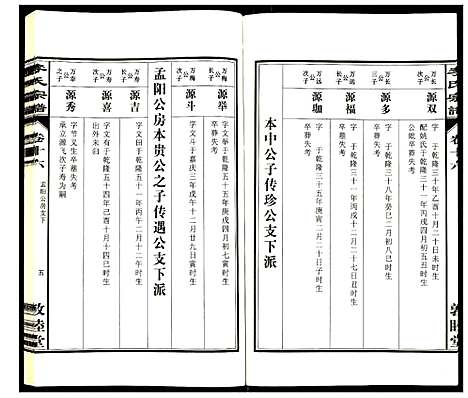 李氏宗谱
卷十六
敦睦堂
万长公次子
源双
于乾隆三十年乙酉十月二十日未时生
配姚氏于乾隆三十一年丙戌四月初五丑时生
公妣卒葬失考
万多公三子
源多
于乾隆三十八年癸巳二月初八巳时生
卒葬失考
万远公长子
源福
于乾隆三十一年丙戌十月二十二卯时生
卒葬失考
万远公次子
源珈
于乾隆三十五年庚寅二月二十一卯时生
卒葬失考
本中公子传珍公支下派
万梅公长子
源举
字文举于乾隆五十五年庚戌四月初七寅时生
卒葬失考
万梅公次子
源斗
字文斗于嘉庆三年戊午十二月廿九日寅时生
卒葬失考
孟阳公房本贵公之子传遇公支下派
万寿公长子
源吉
字文田于乾隆五十一年丙午二月十二午时生
卒葬失考
万寿公次子
源喜
字文有于乾隆五十四年己酉十月十四巳时生
出外未归
万幸公之子
源秀
字节义生卒葬失考
承立源飞次子寿为嗣
李氏宗谱
卷十六
孟阳公房支下
五
敦睦堂